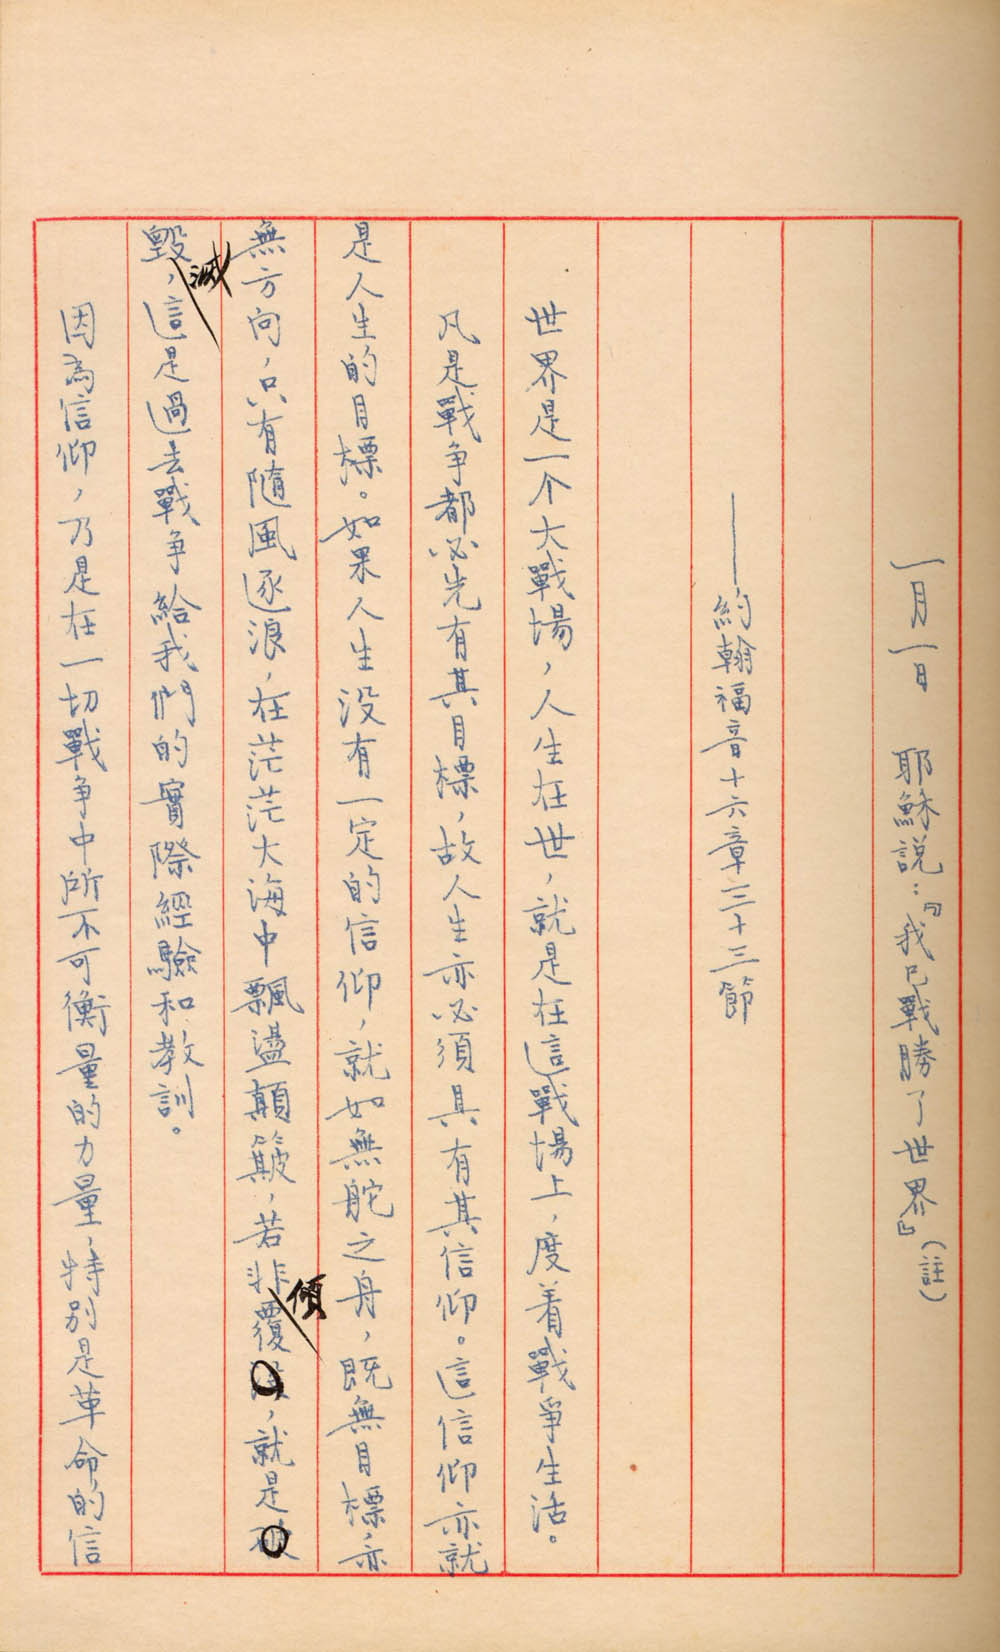 一月一日　耶穌說：『我已戰勝了世界』（註）
——約翰福音十六章三十三節
世界是一个大戰場，人生在世，就是在這戰場上，度着戰爭生活。
凡是戰争都必先有其目標，故人生亦必須具有其信仰。這信仰亦就
是人生的目標。如果人生没有一定的信仰，就如無舵之舟，既無目標，亦
無方向，只有隨風逐浪，在茫茫大海中飄盪顛簸，若非傾覆，就是
毀滅，這是過去戰争給我們的實際經驗和教訓。
因為信仰，乃是在一切戰争中所不可衡量的力量，特別是革命的信